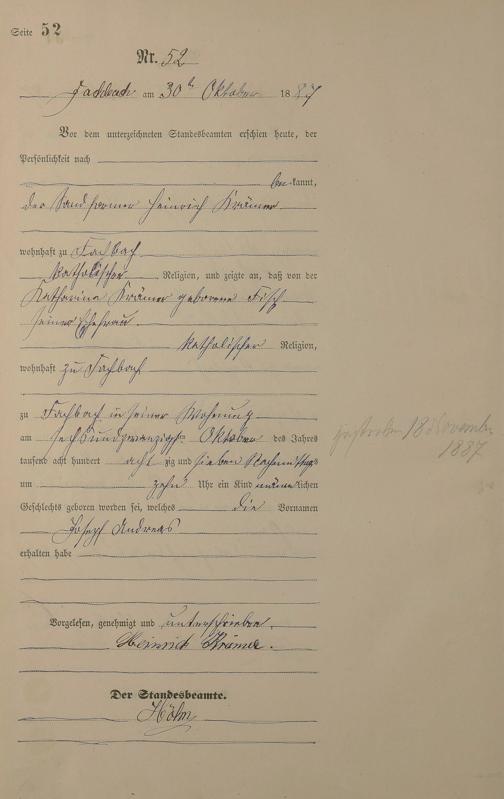 Seite 52
Nr. 52
Fachbach am 30ten Oktober 1887
Vor dem unterzeichneten Standesbeamten erschien heute, der
Persönlichkeit nach
be kannt,
der Sandformer Heinrich Krämer
wohnhaft zu Fachbach
katholischer Religion, und zeigte an, daß von der
Katharina Krämer geborene Fisch
seiner Ehefrau
katholischer Religion,
wohnhaft zu Fachbach
zu Fachbach in seiner Wohnung
am sechsundzwanzigsten Oktober des Jahres
tausend acht hundert acht zig und sieben Nachmittags
um zehn Uhr ein Kind männlichen
Geschlechts geboren worden sei, welches die Vornamen
Joseph Andreas
erhalten habe
gestorben 18 November
1887
Vorgelesen, genehmigt und unterschrieben.
Heinrich Krämer.
Der Standesbeamte.
Höhn